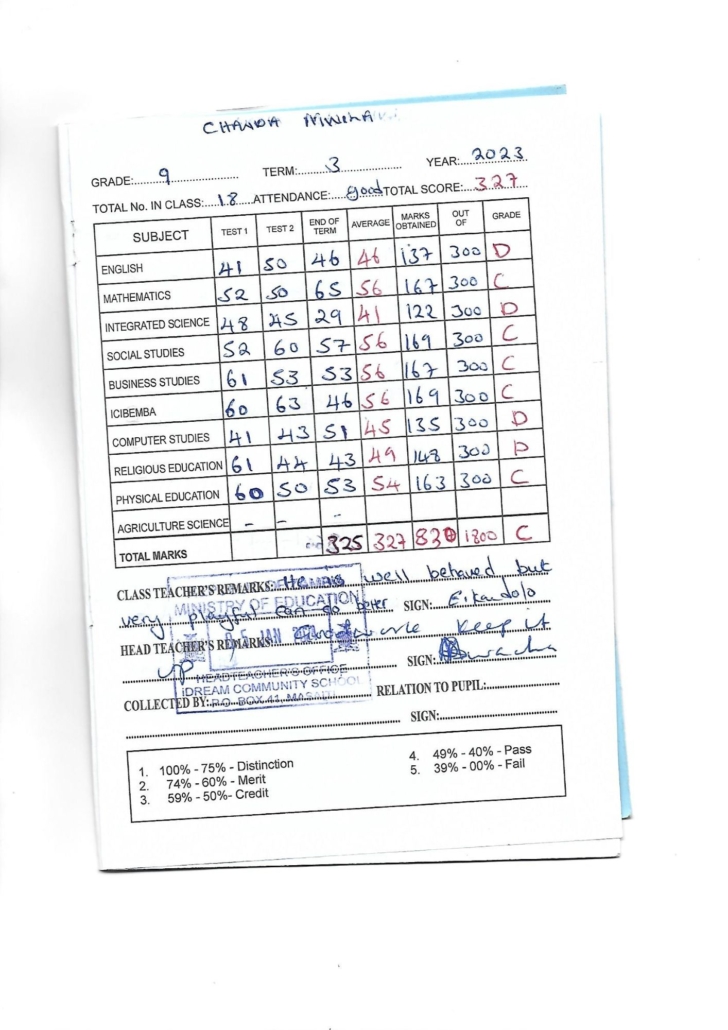 CHANDA MWCHA
GRADE: 9 TERM: 3 YEAR: 2023
TOTAL No. IN CLASS: 18 ATTENDANCE: good TOTAL SCORE: 327
SUBJECT TEST 1 TEST 2 END OF TERM AVERAGE MARKS OBTAINED OUT OF GRADE
ENGLISH 41 50 46 46 137 300 D
MATHEMATICS 52 50 65 56 167 300 C
INTEGRATED SCIENCE 48 45 29 41 122 300 D
SOCIAL STUDIES 52 60 57 56 169 300 C
BUSINESS STUDIES 61 53 53 56 167 300 C
ICIBEMBA 60 63 46 56 169 300 C
COMPUTER STUDIES 41 43 51 45 135 300 D
RELIGIOUS EDUCATION 61 44 43 49 148 300 D
PHYSICAL EDUCATION 60 50 53 54 163 300 C
AGRICULTURE SCIENCE - - -
TOTAL MARKS 325 327 830 1800 C
CLASS TEACHER'S REMARKS: He is well behaved but
very playful can do beter SIGN:
MINISTRY OF EDUCATION
HEAD TEACHER'S REMARKS: Keep it
JAN
up SIGN:
HEADTEACHER'S OFFICE
iDREAM COMMUNITY SCHOOL
COLLECTED BY: RELATION TO PUPIL:
P.O. BOX 41,
SIGN:
1. 100% - 75% - Distinction
2. 74% - 60% - Merit
3. 59% - 50%- Credit
4. 49% - 40% - Pass
5. 39% - 00% - Fail